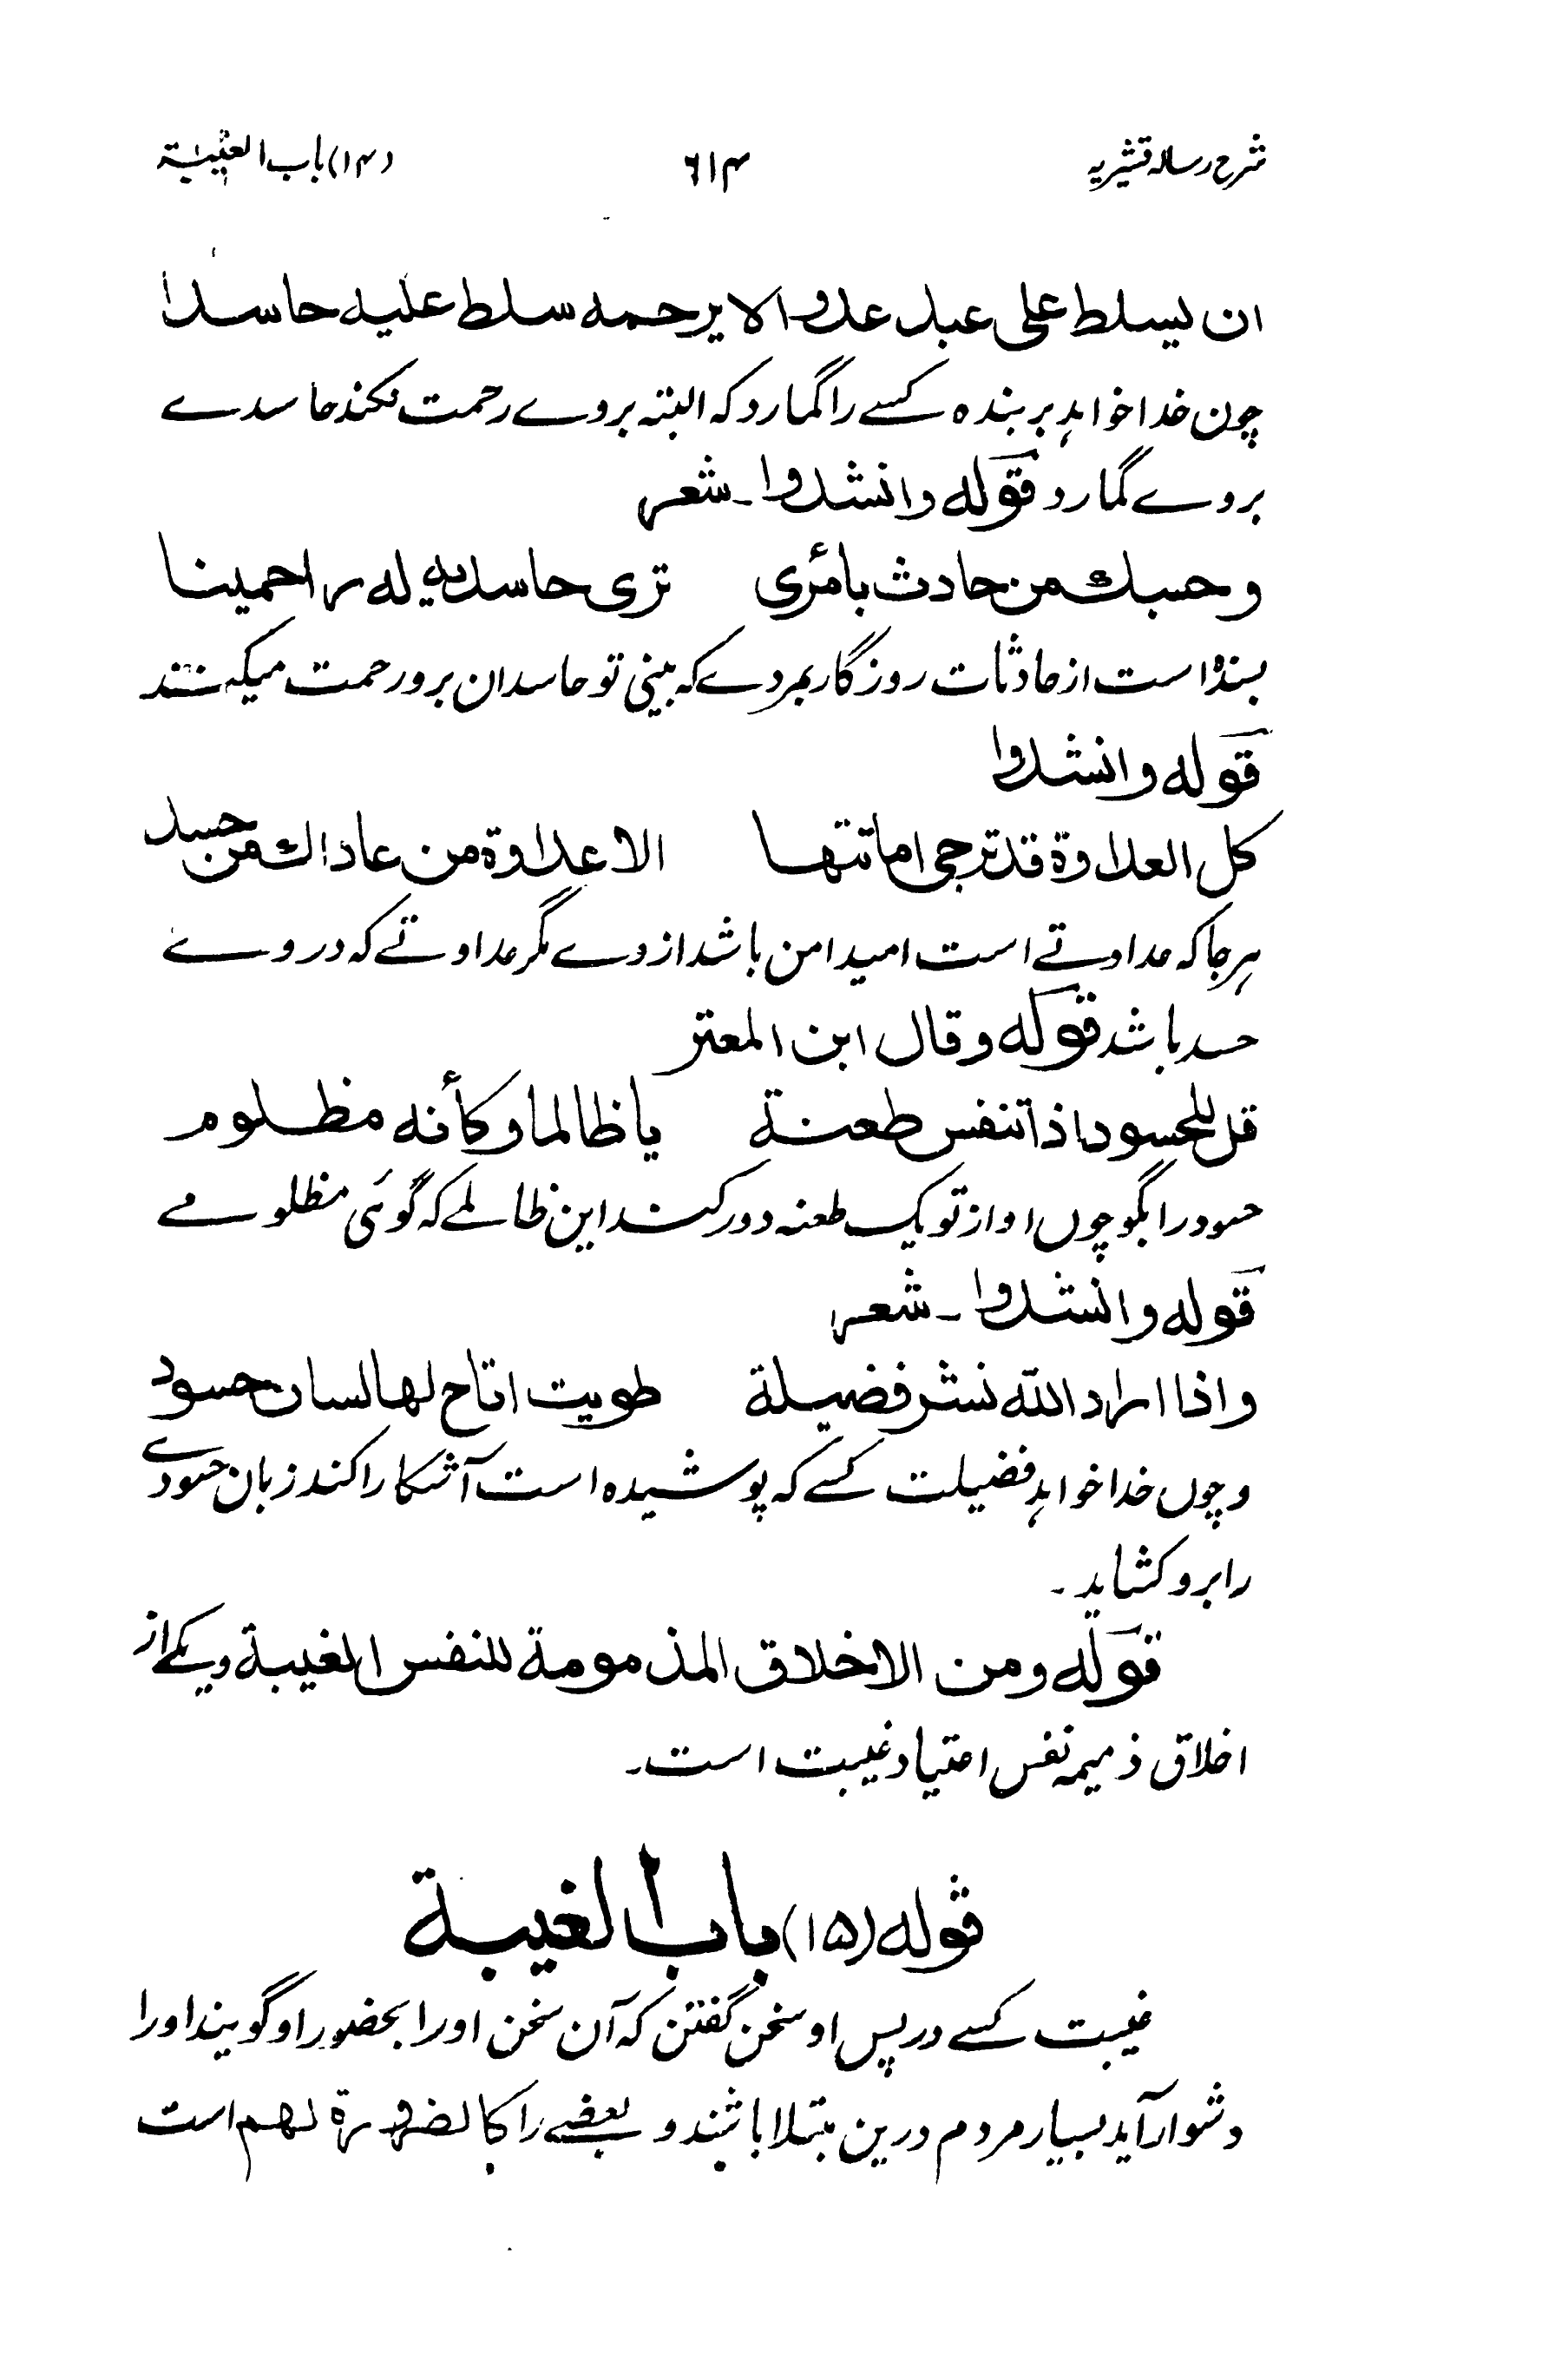 شرح رساله قشیریه ۶۱۴ (۱۴) باب الغیبة
ان یسلط علی عبد عدوا لا یرحمه سلط علیه حاسدا
چون خدا خواهد بر بنده کسے را گمارد که البته بروے رحمت نکند حاسدے
بروے گمارد قوله وانشدوا۔ شعر
وحسبك من حادث بامرئ تری حاسدیه له راحمینا
بسنده است از حادثات روزگار بمردے که بینی تو حاسدان برو رحمت میکنند
قوله وانشدوا
کل العداوة قد ترجی اماتتها الا عداوة من عاداك من حسد
هرجا که عداوتے است امید امن باشد ازوے مگر عداوتے که دروے
حسد باشد قوله وقال ابن المعتز
قل للحسود اذا تنفس طعنة یا ظالما وکأنه مظلوم
حسود را بگو چوں او از تو یک طعنه دور کند این ظالمے که گوئی مظلومے
قوله وانشدوا۔ شعر
واذا اراد الله نشر فضیلة طویت اتاح لها لسان حسود
وچوں خدا خواهد فضیلت کسے که پوشیده است آشکارا کند زبان حسودے
را برو کشاید۔
قوله ومن الاخلاق المذمومة للنفس الغیبة ویکے از
اخلاق ذمیمه نفس اعتیاد غیبت است۔
قوله (۱۵) باب الغیبة
غیبت کسے در پس او سخن گفتن که آن سخن او را بحضور او گویند او را
دشوار آید بسیار مردم درین مبتلا باشند و بعضے را کالضرورة لهم است